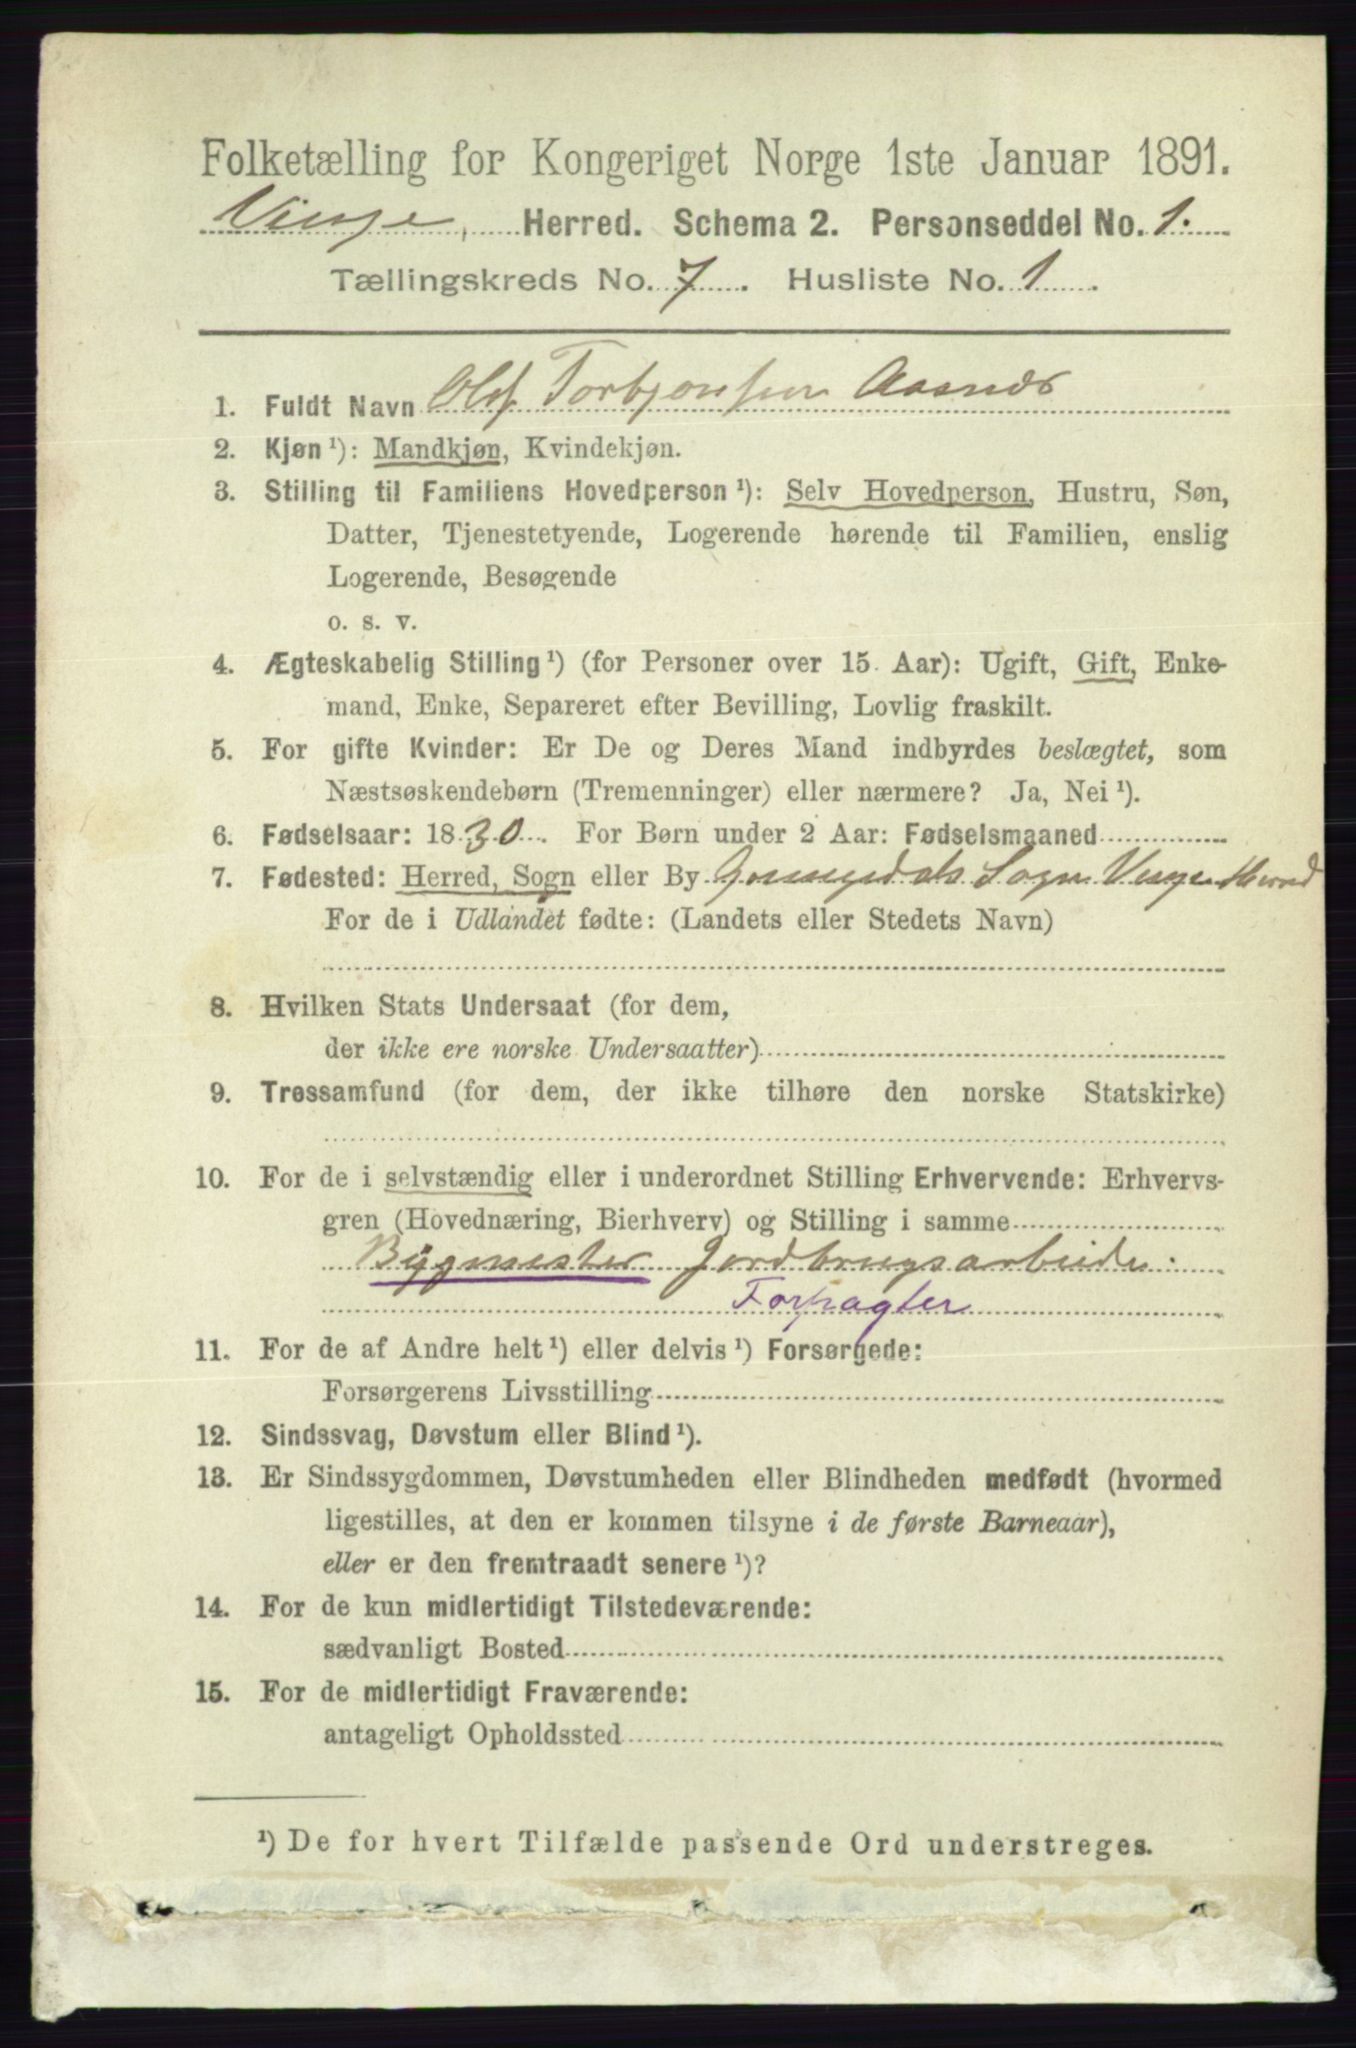 Folketælling for Kongeriget Norge 1ste Januar 1891.
Vinje, Herred. Schema 2. Personseddel No. 1.
Tællingskreds No. 7. Husliste No. 1.
1. Fuldt Navn Olsf Torbjønsen Aasnes
2. Kjøn ¹): Mandkjøn, Kvindekjøn.
3. Stilling til Familiens Hovedperson ¹): Selv Hovedperson, Hustru, Søn,
Datter, Tjenestetyende, Logerende hørende til Familien, enslig
Logerende, Besøgende
o. s. v.
4. Ægteskabelig Stilling ¹) (for Personer over 15 Aar): Ugift, Gift, Enke-
mand, Enke, Separeret efter Bevilling, Lovlig fraskilt.
5. For gifte Kvinder: Er De og Deres Mand indbyrdes beslægtet, som
Næstsøskendebørn (Tremenninger) eller nærmere? Ja, Nei ¹).
6. Fødselsaar: 1830. For Børn under 2 Aar: Fødselsmaaned
7. Fødested: Herred, Sogn eller By Sogn Vinje Herred
For de i Udlandet fødte: (Landets eller Stedets Navn)
8. Hvilken Stats Undersaat (for dem,
der ikke ere norske Undersaatter)
9. Trossamfund (for dem, der ikke tilhøre den norske Statskirke)
10. For de i selvstændig eller i underordnet Stilling Erhvervende: Erhvervs-
gren (Hovednæring, Bierhverv) og Stilling i samme
Bygmester Jordbrugsarbeider.
Forpagter
11. For de af Andre helt ¹) eller delvis ¹) Forsørgede:
Forsørgerens Livsstilling
12. Sindssvag, Døvstum eller Blind ¹).
13. Er Sindssygdommen, Døvstumheden eller Blindheden medfødt (hvormed
ligestilles, at den er kommen tilsyne i de første Barneaar),
eller er den fremtraadt senere ¹)?
14. For de kun midlertidigt Tilstedeværende:
sædvanligt Bosted
15. For de midlertidigt Fraværende:
antageligt Opholdssted
¹) De for hvert Tilfælde passende Ord understreges.